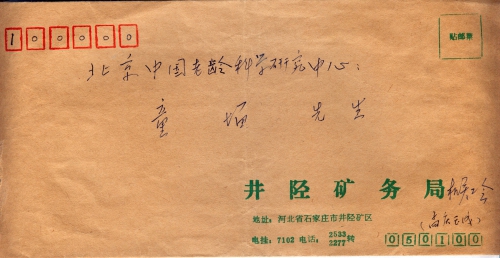 100000
贴邮票
北京中国老龄科学研究中心:
童 先生
井陉矿务局 工会
地址: 河北省石家庄市井陉矿区
电挂: 7102 电话: 2533 2277 转
050100